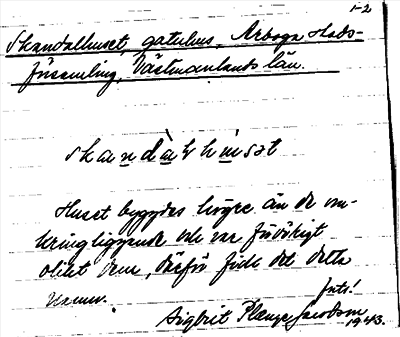 1-2
Skandalhuset, gatuhus, Arboga Stads-
församling, Västmanlands län.
skandàlhùsət
Huset byggdes högre än de om-
kringliggande och var för övrigt
olikt dem, därför fick det detta
namn.
Sigbrit Plænge Jacobson
1943.